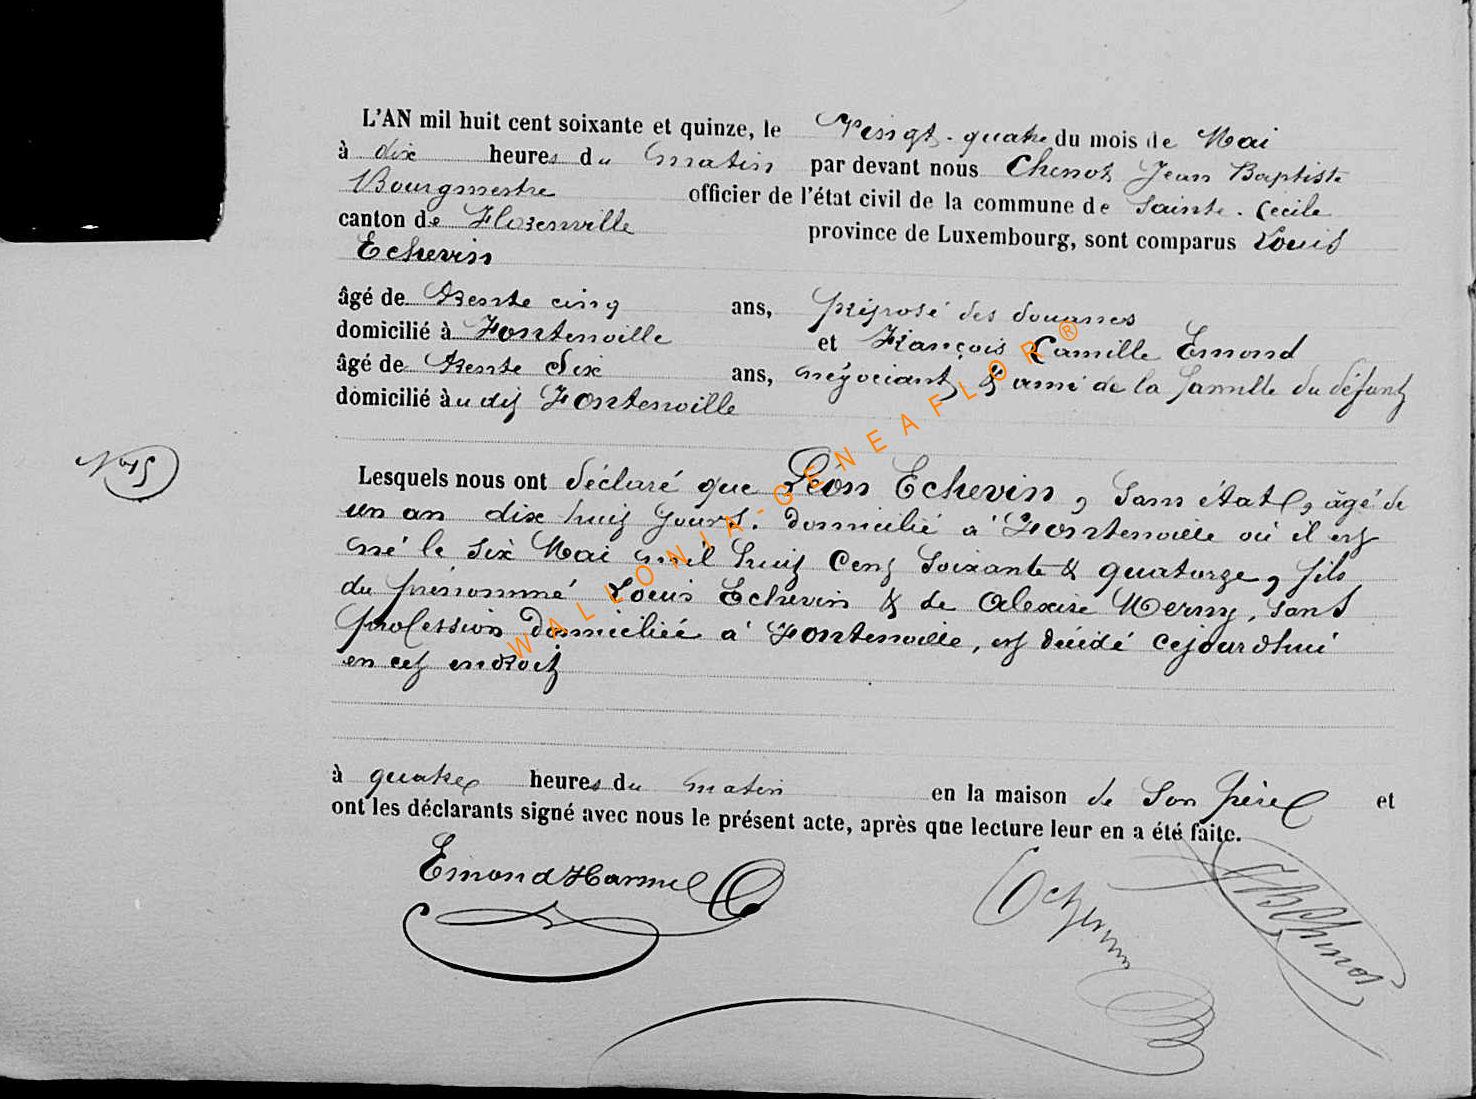 L'AN mil huit cent soixante et quinze, le Vingt-quatre du mois de Mai
à dix heures du matin par devant nous Chenot Jean Baptiste
Bourgmestre officier de l'état civil de la commune de Sainte-Cecile
canton de Florenville province de Luxembourg, sont comparus Louis
Echevin
âgé de trente cinq ans, préposé des douanes
domicilié à Fontenoille et François Camille Emond
âgé de trente Six ans, négociant & ami de la famille du défunt
domicilié àu dit Fontenoille
N° 15
Lesquels nous ont déclaré que Léon Echevin, sans état, âgé de
un an dix huit jours. domicilié à Fontenoille où il est
né le Six Mai mil huit Cent Soixante & quatorze, fils
du prénommé Louis Echevin & de Alexise Merny, sans
profession domiciliée à Fontenoille, est décédé cejourdhui
en cet endroit
à quatre heures du matin en la maison de Son père et
ont les déclarants signé avec nous le présent acte, après que lecture leur en a été faite.
Emond Harmel Echevin JB Chenot
WALLONIA-GENEAFLOR®